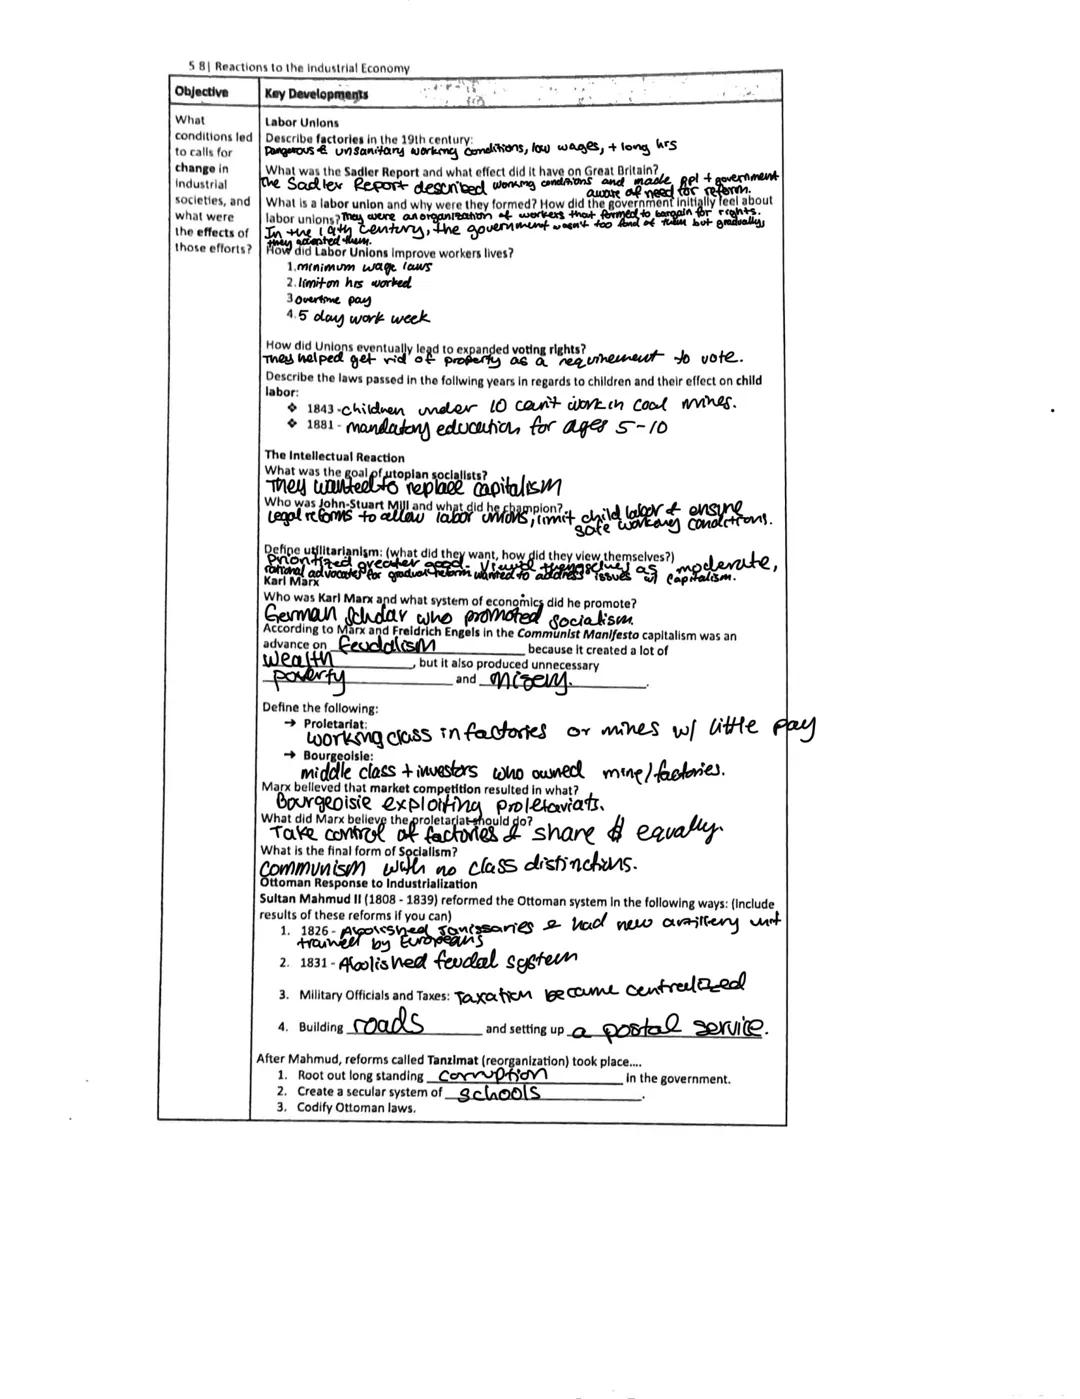 5 8| Reactions to the Industrial Economy
Objective
Key Developments
What
conditions led
to calls for
change in
industrial
societies, and
what were
the effects of
those efforts?
Labor Unions
Describe factories in the 19th century:
Dangerous & unsanitary working conditions, low wages, + long hrs
What was the Sadler Report and what effect did it have on Great Britain?
The Sadler Report described working conditions and made ppl + government
aware of need for reform.
What is a labor union and why were they formed? How did the government initially feel about
labor unions? They were an organization of workers that formed to bargain for rights.
In the 19th century, the government wasn't too fond of them but gradually,
they accepted them.
How did Labor Unions improve workers lives?
1. minimum wage laws
2. limit on hrs worked
3 overtime pay
4. 5 day work week
How did Unions eventually lead to expanded voting rights?
They helped get rid of property as a requirement to vote.
Describe the laws passed in the follwing years in regards to children and their effect on child
labor:
❖ 1843 - children under 10 can't work in coal mines.
❖ 1881 - mandatory education for ages 5-10
The Intellectual Reaction
What was the goal of utopian socialists?
They wanted to replace capitalism
Who was John-Stuart Mill and what did he champion?
Legal reforms to allow labor unions, limit child labor & ensure
safe working conditions.
Define utilitarianism: (what did they want, how did they view themselves?)
Prioritized greater good. Viewed themselves as moderate,
rational advocates for gradual reform wanted to address issues w/ capitalism.
Karl Marx
Who was Karl Marx and what system of economics did he promote?
German Scholar who promoted socialism.
According to Marx and Freidrich Engels in the Communist Manifesto capitalism was an
advance on feudalism because it created a lot of
wealth, but it also produced unnecessary
poverty and misery.
Define the following:
→ Proletariat:
working class in factories or mines w/ little pay
→ Bourgeoisie:
middle class + investors who owned mine/factories.
Marx believed that market competition resulted in what?
Bourgeoisie exploiting proletariats.
What did Marx believe the proletariat should do?
Take control of factories & share $ equally.
What is the final form of Socialism?
Communism with no class distinctions.
Ottoman Response to Industrialization
Sultan Mahmud II (1808 - 1839) reformed the Ottoman system in the following ways: (include
results of these reforms if you can)
1. 1826 - Abolished Janissaries & had new artillery unit
trained by Europeans
2. 1831 - Abolished feudal system
3. Military Officials and Taxes: Taxation became centralized
4. Building roads and setting up a postal service.
After Mahmud, reforms called Tanzimat (reorganization) took place....
1. Root out long standing corruption in the government.
2. Create a secular system of schools.
3. Codify Ottoman laws.